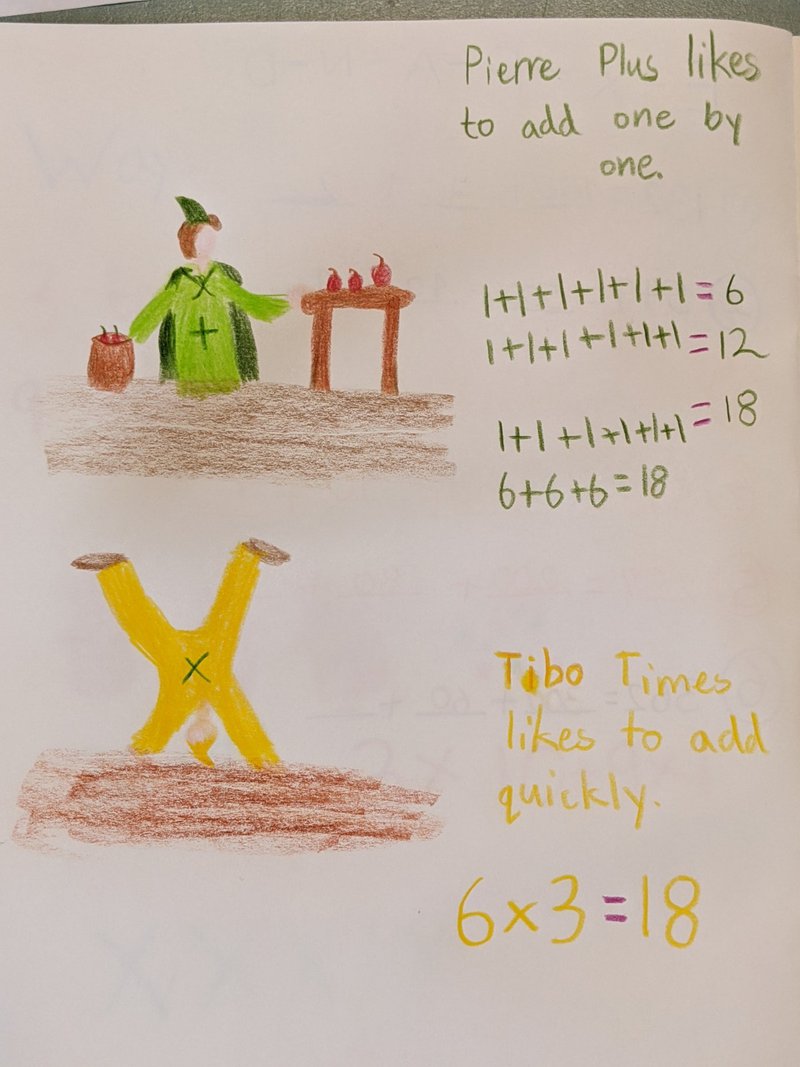 Pierre Plus likes
to add one by
one.
1+1+1+1+1+1=6
1+1+1+1+1+1=12
1+1+1+1+1+1=18
6+6+6=18
+
x
Tibo Times
likes to add
quickly.
6x3=18